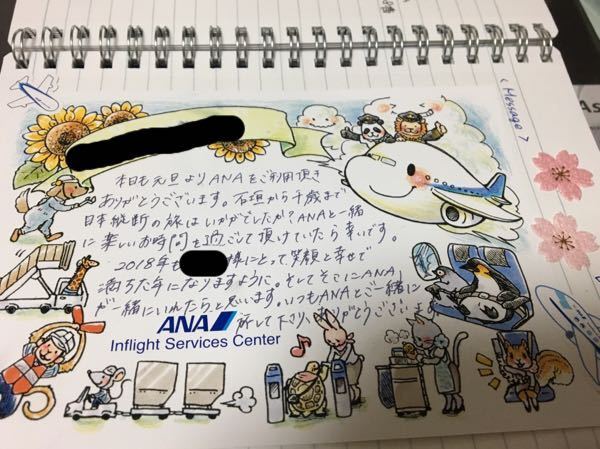 < Message >
本日も元旦よりANAをご利用頂き
ありがとうございます。石垣から千歳まで
日本縦断の旅はいかがでしたか?ANAと一緒
に楽しいお時間を過ごして頂けていたら幸いです。
2018年も 様にとって笑顔と幸せで
満ちた年になりますように。そしてそこにANA
が一緒にいれたらと思います。いつもANAとご一緒に
下さり、ありがとうございます
ANA
Inflight Services Center